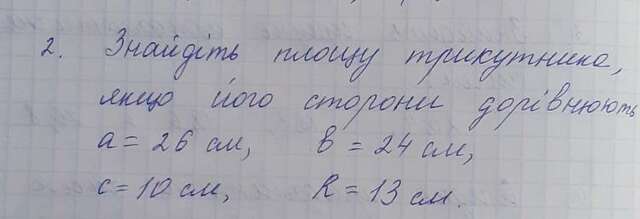 2. Знайдіть площу трикутника,
якщо його сторони дорівнюють
a = 26 см, b = 24 см,
c = 10 см, R = 13 см.